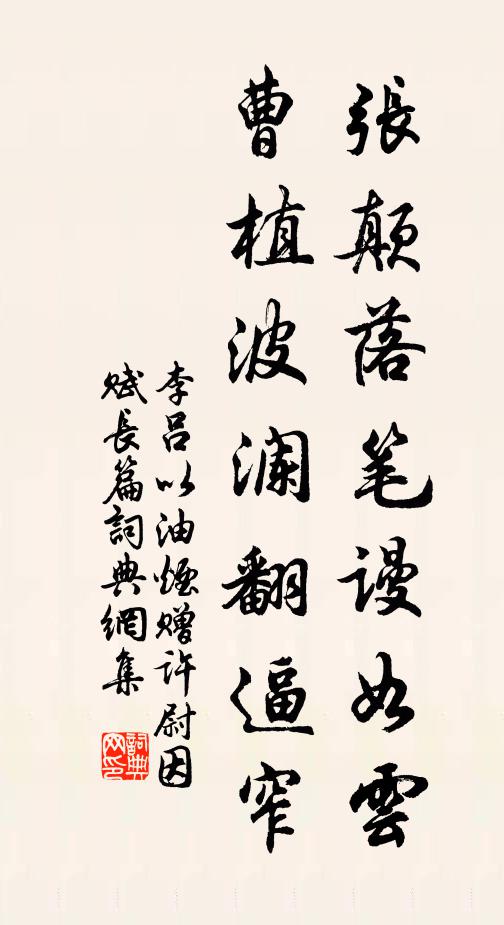 張顛落笔謾如雲
曹植波澜翻逼窄
李吕以油煙贈许尉因
赋長篇詞典網集
詞典网印